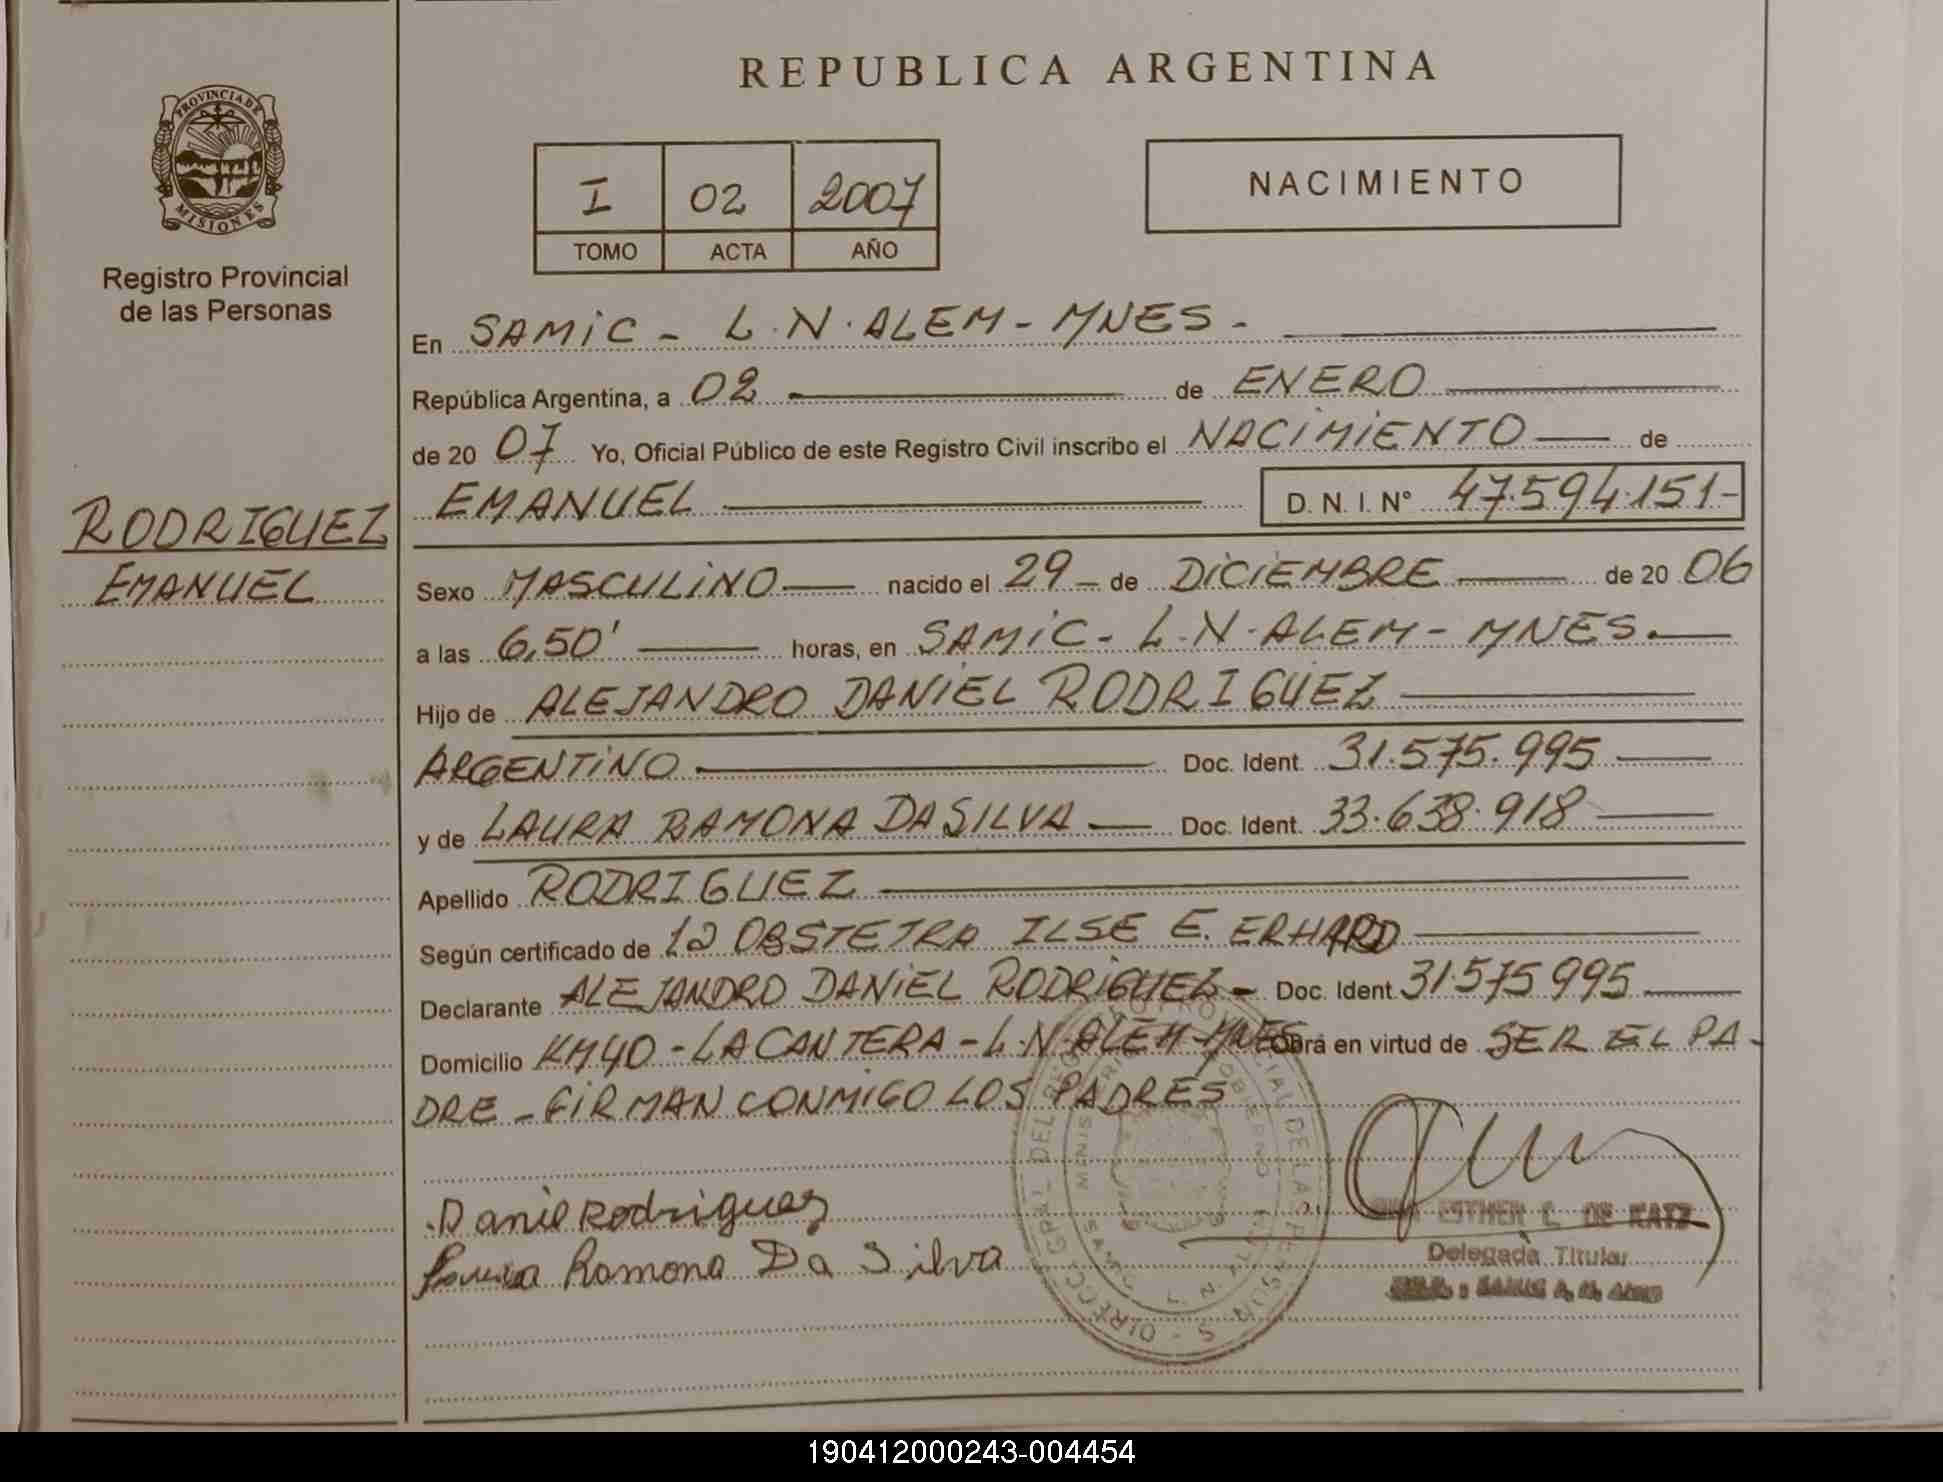 REPUBLICA ARGENTINA
PROVINCIA DE
MISIONES
Registro Provincial
de las Personas
I 02 2007
TOMO ACTA AÑO
NACIMIENTO
En SAMiC - L.N.ALEM - MNES -
República Argentina, a 02 de ENERO
de 20 07 Yo, Oficial Público de este Registro Civil inscribo el NACiMiENTO de
EMANUEL D. N. I. Nº 47.594.151-
RODRIGUEZ
EMANUEL
Sexo MASCULiNO nacido el 29 - de DiCiEMBRE de 20 06
a las 6,50' horas, en SAMiC - L.N.ALEM - MNES.
Hijo de ALEJANDRO DANiEL RODRIGUEZ
ARGENTiNO Doc. Ident. 31.575.995
y de LAURA RAMONA DA SILVA Doc. Ident. 33.638.918
Apellido RODRIGUEZ
Según certificado de la OBSTETRA ILSE E. ERHARD
Declarante ALEJANDRO DANiEL RODRiGUEZ - Doc. Ident. 31.575 995
Domicilio KM 40 - LA CANTERA - L.N.ALEM - MNES Obra en virtud de SER EL PA-
DRE - FiRMAN CONMiGO LOS PADRES
Daniel Rodriguez
Ramona Da Silva
ESTHER C. DE KATZ
Delegada Titular
190412000243-004454